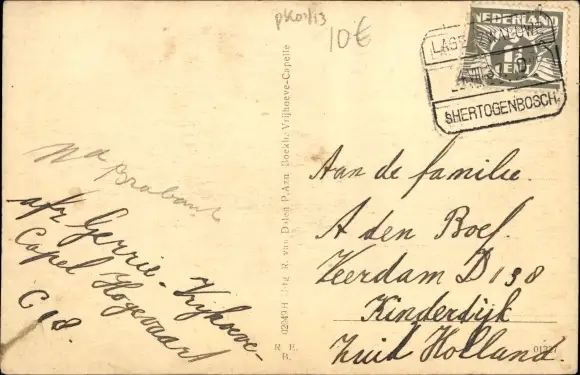 pk01/13
10€
NEDERLAND
1
CENT
LAGE ZWALUWE
B
sHERTOGENBOSCH.
Nd Brabant
afz Gerrie. Vrijhoeve-
Capel Hogevaart
C18.
02049 H Uitg R. van Dalen P.Azn Boekh. Vrijhoeve-Capelle
R. E.
B.
Aan de familie.
A den Boef.
Veerdam D 138
Kinderdijk
Zuid Holland.